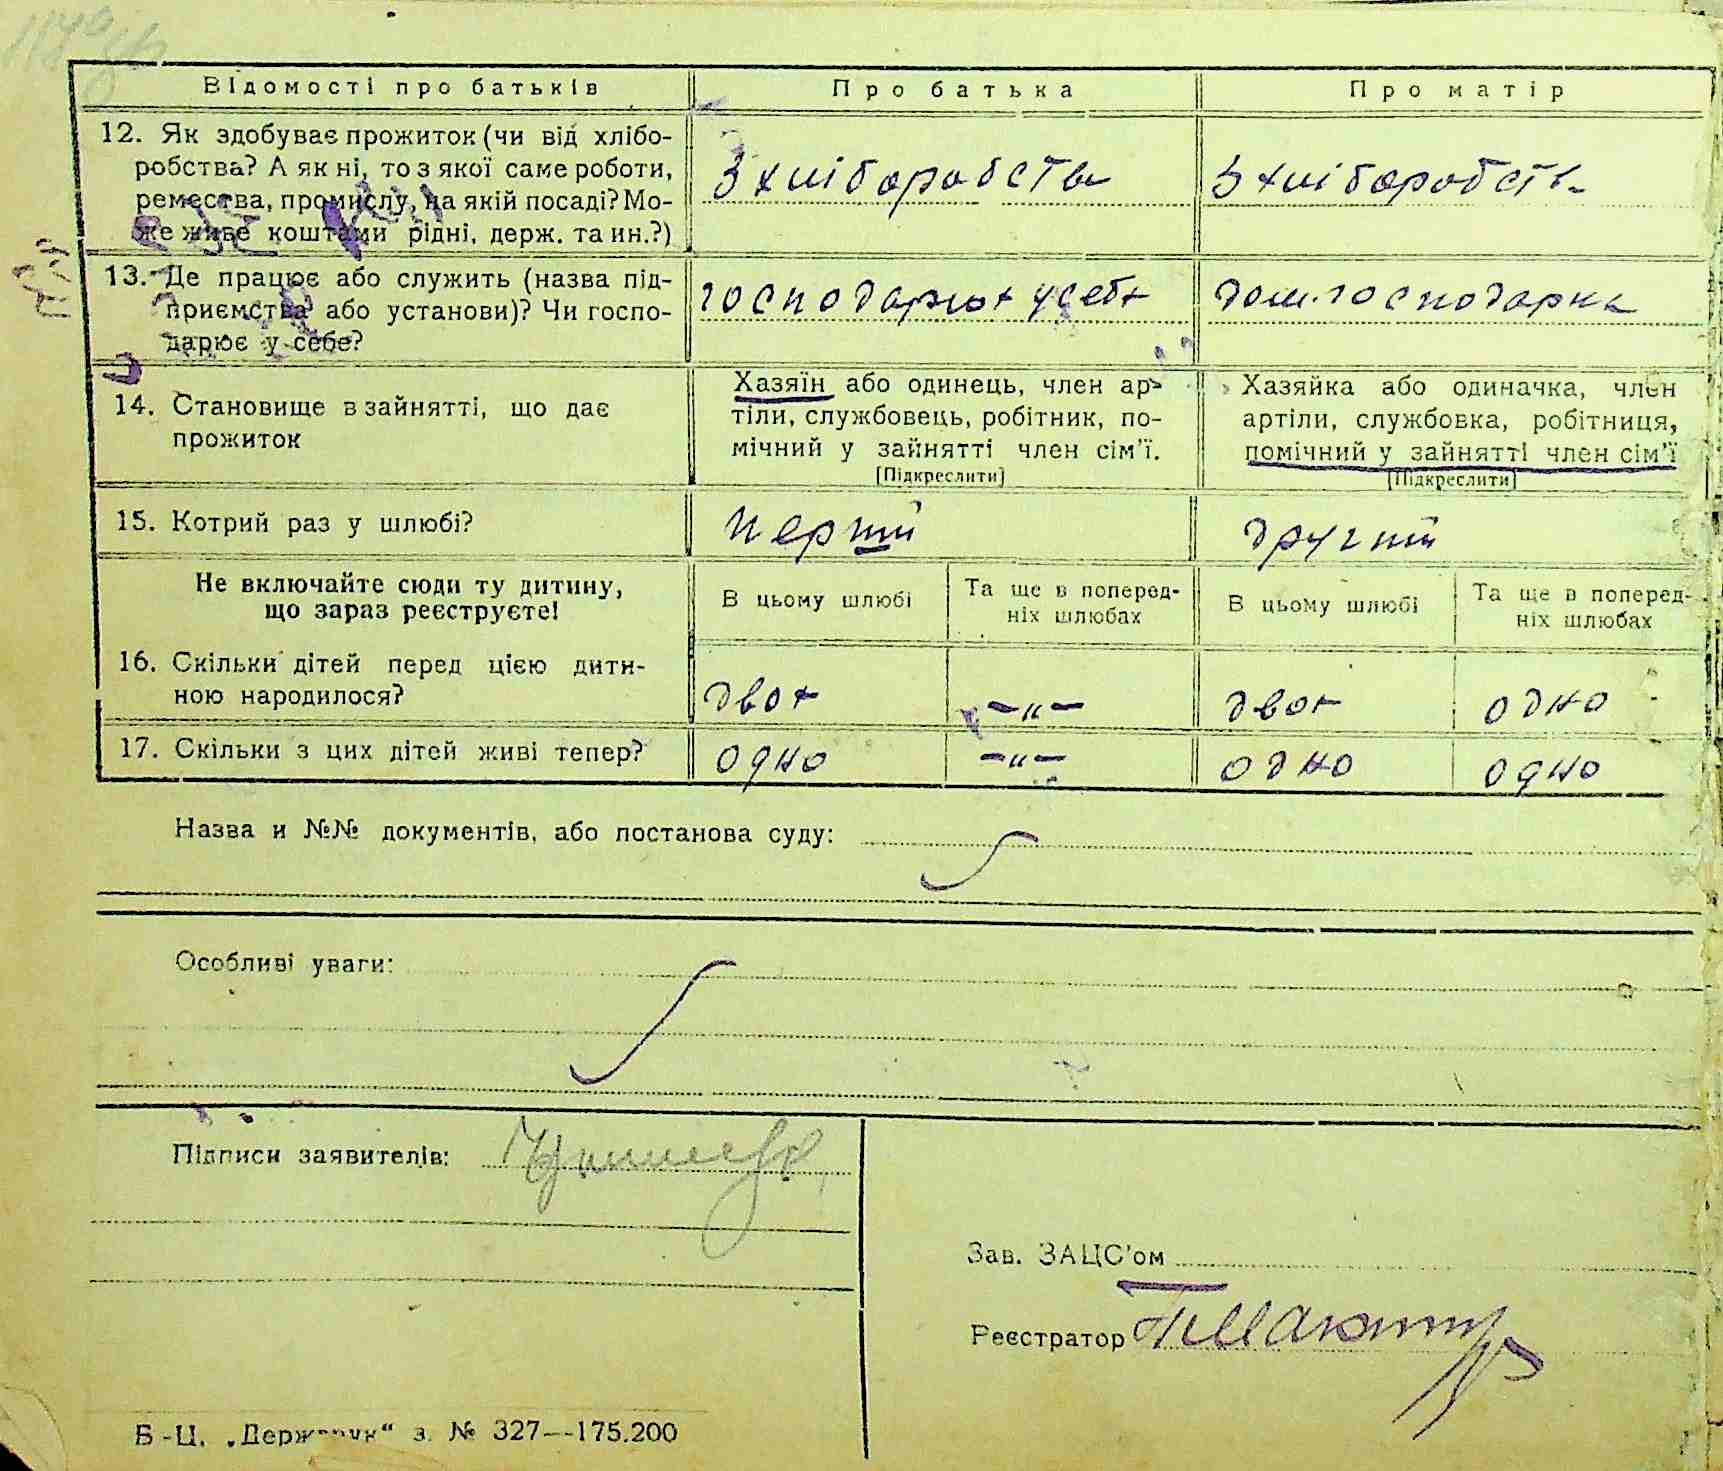 Відомості про батьків
Про батька
Про матір
12. Як здобуває прожиток (чи від хлібо-
робства? А як ні, то з якої саме роботи,
ремества, промислу, на якій посаді? Мо-
же живе коштами рідні, держ. та ин.?)
З хліборобства
З хліборобства
13. Де працює або служить (назва під-
приємства або установи)? Чи госпо-
дарює у себе?
господарює у себе
дом. господарка
14. Становище в зайнятті, що дає
прожиток
Хазяїн або одинець, член ар-
тіли, службовець, робітник, по-
мічний у зайнятті член сім'ї.
[Підкреслити]
Хазяйка або одиначка, член
артіли, службовка, робітниця,
помічний у зайнятті член сім'ї
[Підкреслити]
15. Котрий раз у шлюбі?
перший
другий
Не включайте сюди ту дитину,
що зараз реєструєте!
В цьому шлюбі
Та ще в поперед-
ніх шлюбах
В цьому шлюбі
Та ще в поперед-
ніх шлюбах
16. Скільки дітей перед цією дити-
ною народилося?
двоє
–„–
двоє
одно
17. Скільки з цих дітей живі тепер?
одно
–„–
одно
одно
Назва и №№ документів, або постанова суду:
Особливі уваги:
Підписи заявителів:
Зав. ЗАЦС'ом
Реєстратор
Б-Ц. „Держдрук“ з. № 327—175.200